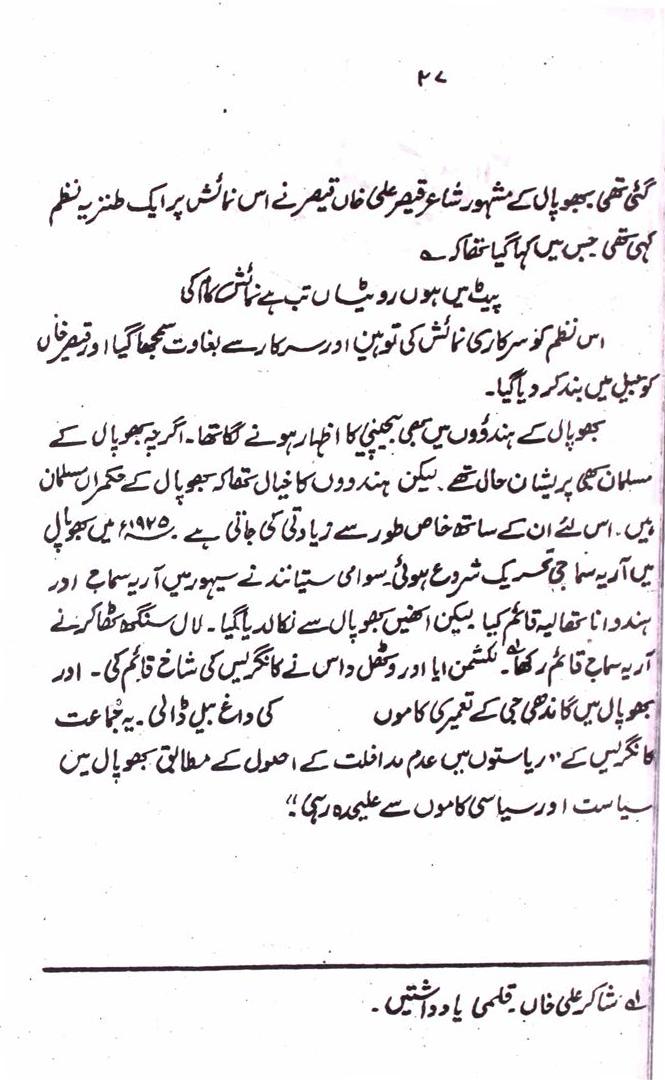 ۲۷
گئی تھی بھوپال کے مشہور شاعر قیصر علی خاں قیصر نے اس نمائش پر ایک طنزیہ نظم
کہی تھی جس میں کہا گیا تھا کہ ؎
پیٹ میں ہوں روٹیاں تب ہے نمائش کام کی
اس نظم کو سرکاری نمائش کی توہین اور سرکار سے بغاوت سمجھا گیا اور قیصر خاں
کو جیل میں بند کر دیا گیا۔
بھوپال کے ہندوؤں میں بھی بیچینی کا اظہار ہونے لگا تھا۔ اگرچہ بھوپال کے
مسلمان بھی پریشان حال تھے۔ لیکن ہندووں کا خیال تھا کہ بھوپال کے حکمراں مسلمان
ہیں۔ اس لئے ان کے ساتھ خاص طور سے زیادتی کی جاتی ہے۔ ۱۹۲۵ء میں بھوپال
میں آریہ سماجی تحریک شروع ہوئی۔ سوامی ستیانند نے سیہور میں آریہ سماج اور
ہندو اناتھالیہ قائم کیا لیکن انھیں بھوپال سے نکال دیا گیا۔ لال سنگھ ٹھاکر نے
آریہ سماج قائم رکھا۱؎۔ لکشمن ایا اور وٹھل داس نے کانگریس کی شاخ قائم کی۔ اور
بھوپال میں گاندھی جی کے تعمیری کاموں کی داغ بیل ڈالی۔ یہ جماعت
کانگریس کے "ریاستوں میں عدم مداخلت کے اصول کے مطابق بھوپال میں
سیاست اور سیاسی کاموں سے علیحدہ رہی"
۱؎ شاکر علی خاں۔ قلمی یادداشتیں۔